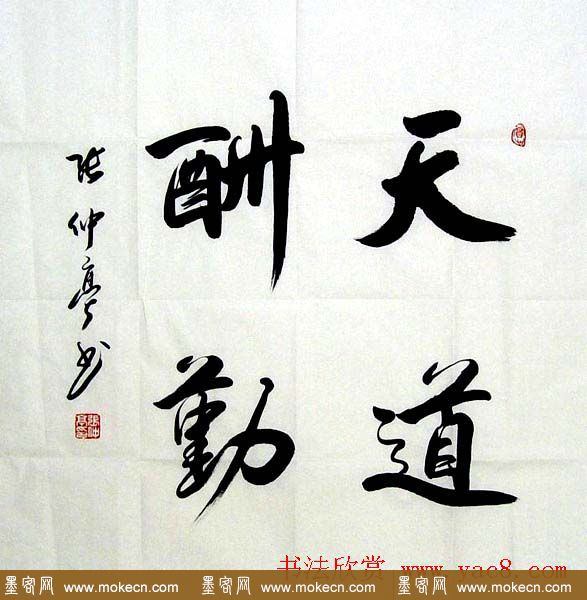 天道
酬勤
张仲亭书
张仲亭印
书法欣赏 www.yac8.com
墨客网 www.mokecn.com 墨客网 www.mokecn.com 墨客网 www.mokecn.com